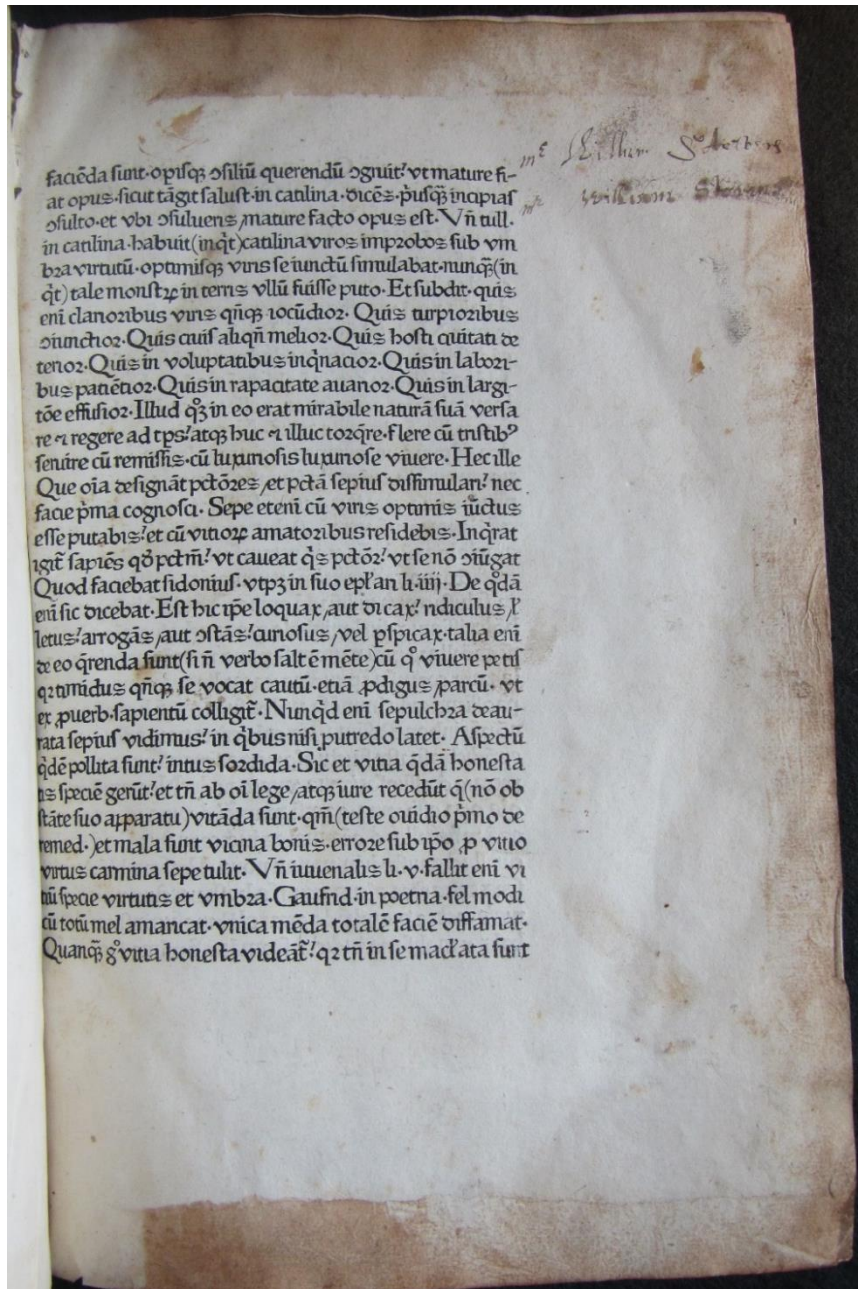 faciēda sunt·opisqꝫ ↄsiliū querendū ↄgruit.ˀ vt mature fi-
at opus·sicut tāgit salust·in catilina·dicēs·p̄usqꝫ̄ incipias
ↄsulto·et vbi ↄsuluens/mature facto opus est·Vn̄ tull·
in catilina·habuit(inq̄t)catilina viros improbos sub vm
bra virtutū·optimisqꝫ viris se iunctū simulabat·nunqꝫ̄(in
q̄t)tale monstrꝝ in terris vllū fuisse puto·Et subdit·quis
eni clarioribus viris qn̄qꝫ iocūdior·Quis turpioribus
ↄiunctior·Quis ciuis aliqn̄ melior·Quis hosti ciuitati de
terior·Quis in voluptatibus inq̄nacior·Quis in labori-
bus patiētior·Quis in rapacitate auarior·Quis in largi-
tōe effusior·Illud qꝫ̊ in eo erat mirabile naturā suā versa
re ⁊ regere ad tps.ˀatqꝫ huc ⁊ illuc torq̄re·flere cū tristibꝰ
seruire cū remissis·cū luxuriosis luxuriose viuere·Hec ille
Que oīa designāt pctōres/et pctā sepius dissimulari.ˀ nec
facie p̄ma cognosci·Sepe eteni cū viris optimis iūctus
esse putabis.ˀet cū vitioꝝ amatoribus residebis·Inq̄rat
igit̄ sapiēs qđ pctm̄.ˀ vt caueat q̄s pctōr.ˀ vt se nō ↄiūgat
Quod faciebat sidonius·vtpꝫ in suo epl̄ari li·iiij·De qđā
eni sic dicebat·Est hic ip̄e loquax/aut dicax.ˀ ridiculus/l̄
letus.ˀarrogās/aut ↄstās.ˀcuriosus/vel ꝑspicax·talia eni
de eo q̄renda sunt(si n̄ verbo salt ē mēte)cū qͦ viuere petis
qꝛ timidus qn̄qꝫ se vocat cautū·etiā ꝓdigus/parcū·vt
ex ꝓuerb·sapientū colligit̄·Nunq̄d eni sepulchra deau-
rata sepius vidimus.ˀ in q̄bus nisi putredo latet·Aspectu
q̄dē pollita sunt.ˀ intus sordida·Sic et vitia q̄dā honesta
tis speciē gerūt.ˀet tn̄ ab oī lege/atqꝫ iure recedūt q̄(nō ob
stāte suo apparatu)vitāda sunt·qm̄(teste ouidio p̄mo de
remed·)et mala sunt vicina bonis·errore sub ip̄o ꝓ vitio
virtus carmina sepe tulit·Vn̄ iuuenalis li·v·fallit eni vi
tiū specie virtutis et vmbra·Gaufrid·in poetria·fel modi
cū totū mel amaricat·vnica mēda totalē faciē diffamat·
Quanqꝫ̄ gͦ vitia honesta videāt̄.ˀ qꝛ tn̄ in se macl̄ata sunt
mr William
mr William